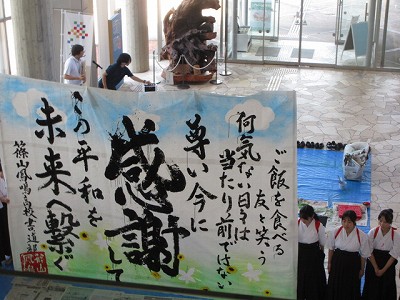 ご飯を食べる
友と笑う
何気ない日々は
当たり前ではない
尊い今に
感謝して
この平和を
未来へ繋ぐ
篠山鳳鳴高校書道部